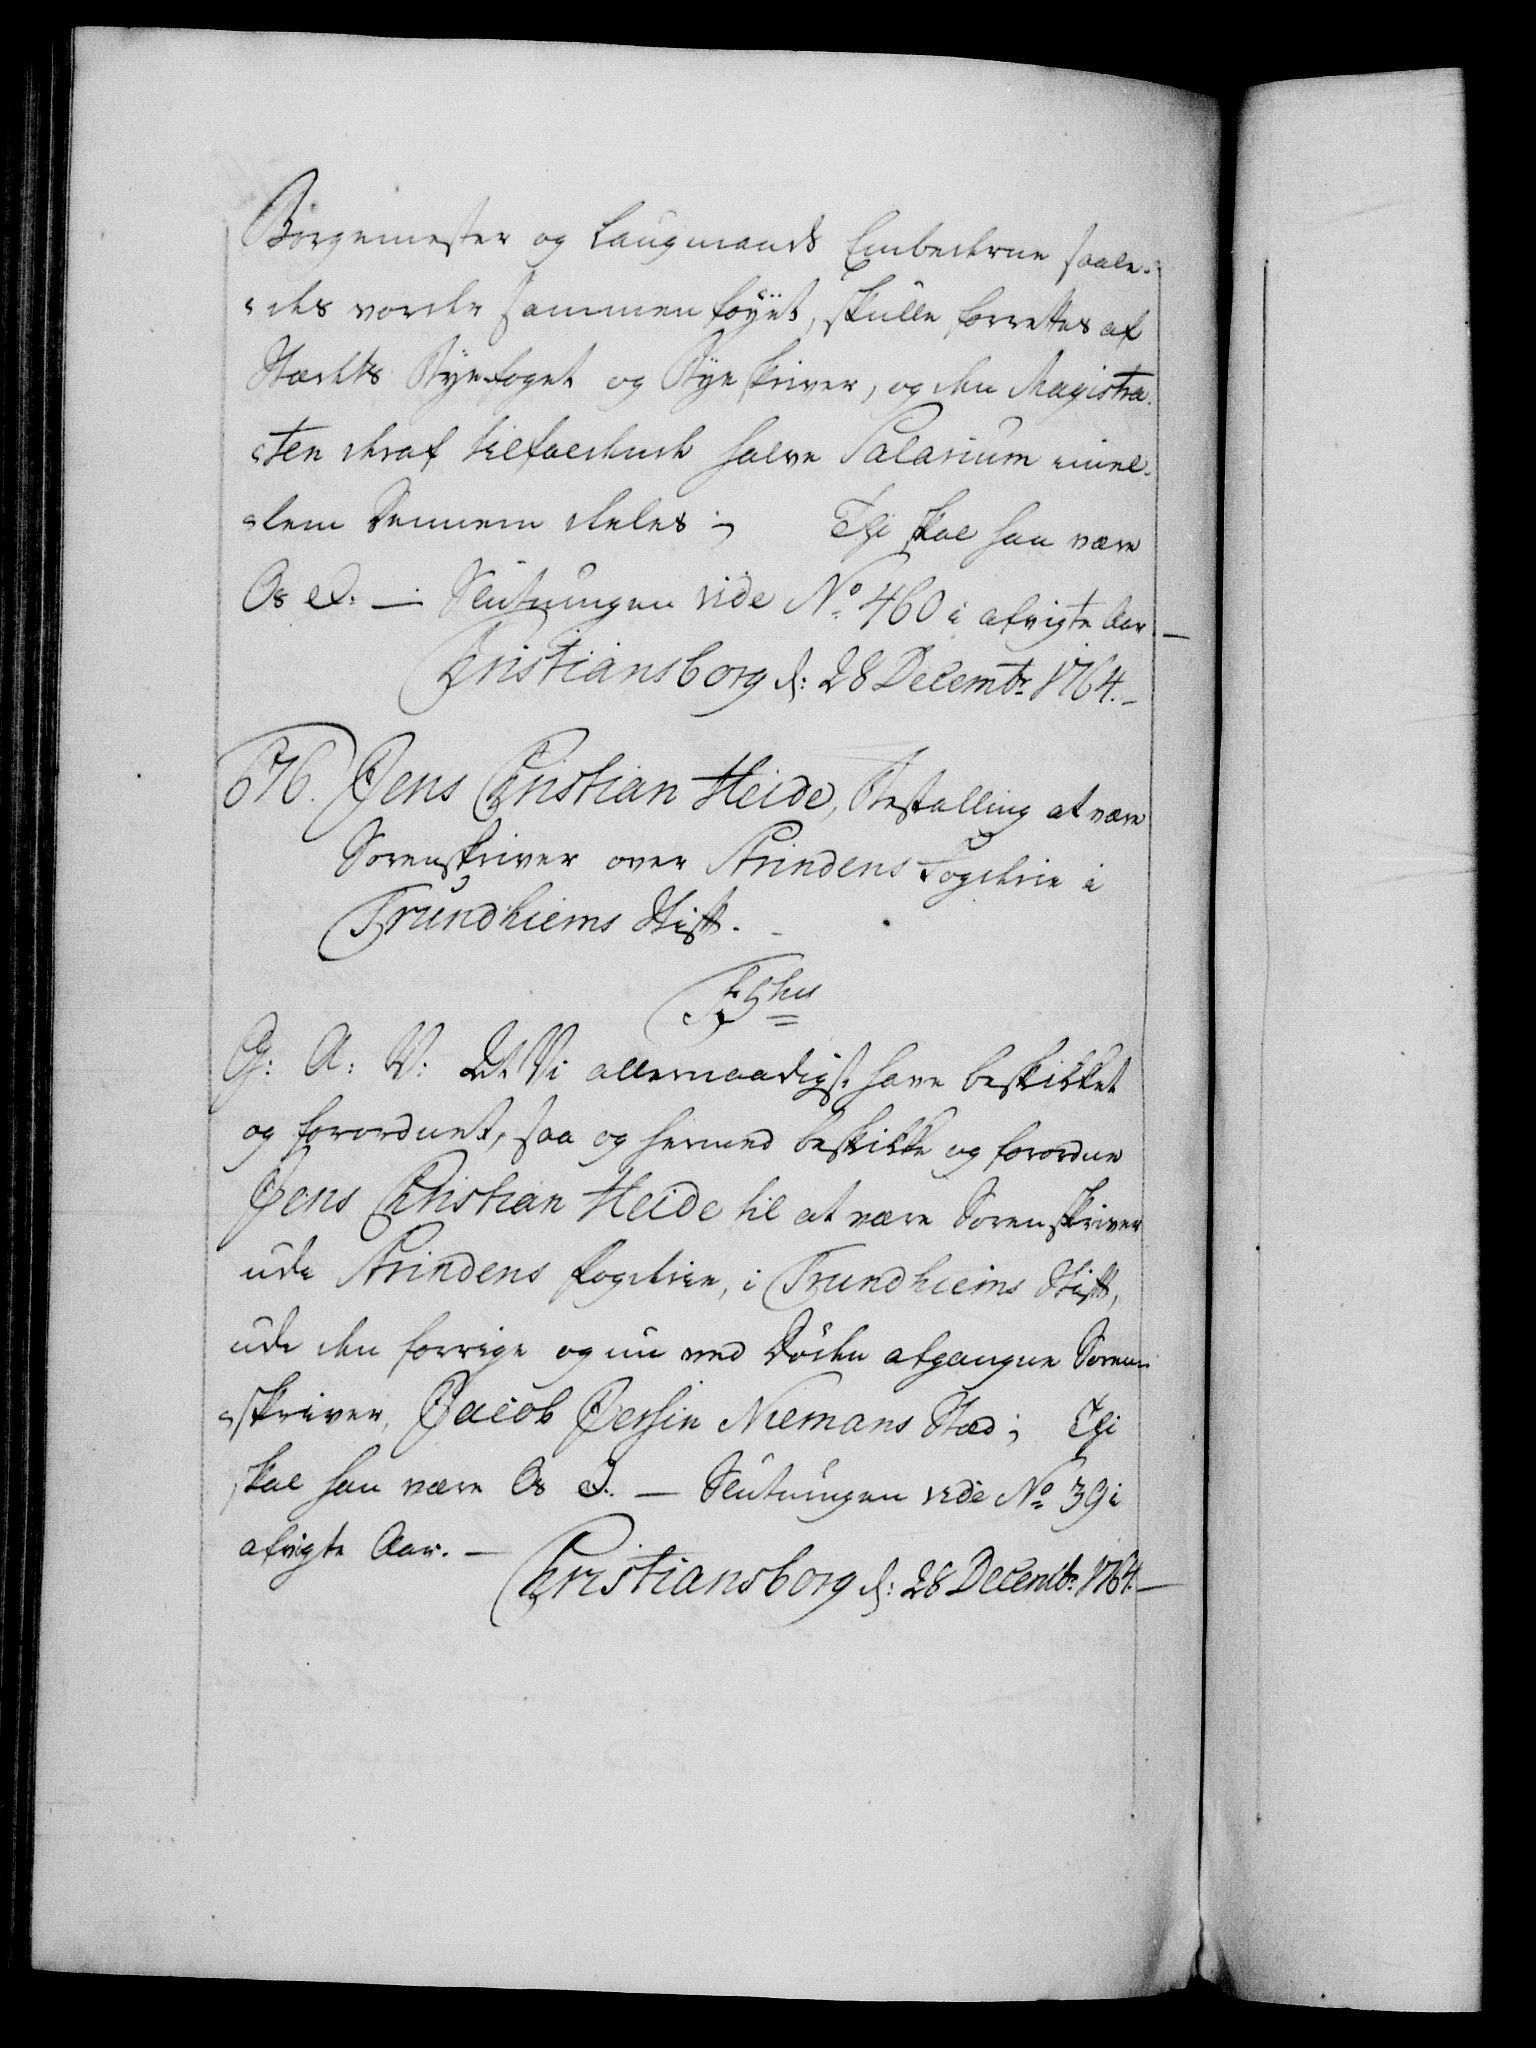 Borgemester og Laugmands Embederne saale-
des vorder sammenføyet, skulle forrettes af
Stædets Byefoget og Byeskriver, og den Magistra-
ten deraf tilfaldende halve Salarium imel-
lem Dennem deeles; Thi skal han være
Os &. — Slutningen vide No. 460 i afvigte Aar. —
Christiansborg d: 28 Decembr. 1764. —
676. Jens Christian Heide, Bestalling at være
Sorenskriver over Strindens Fogderie i
Trundhiems Stift. —
F 5tus
G: A: V: At Vi allernaadigst have beskikket
og forordnet, saa og hermed beskikke og forordne
Jens Christian Heide til at være Sorenskriver
udi Strindens Fogderie, i Trundhiems Stift,
udi den forrige og nu ved Døden afgangne Soren-
skriver, Jacob Niemans Stæd; Thi
skal han være Os &. — Slutningen vide No. 39 i
afvigte Aar. —
Christiansborg d: 28 Decembr. 1764. —